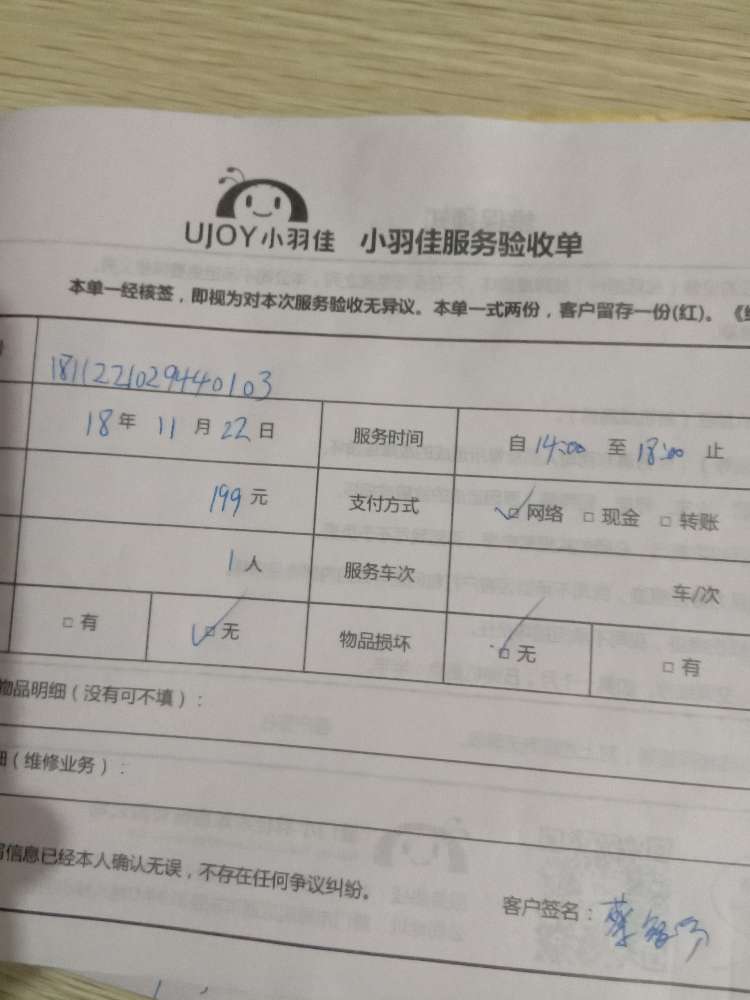 UJOY小羽佳 小羽佳服务验收单
本单一经核签，即视为对本次服务验收无异议。本单一式两份，客户留存一份(红)。《
1811221029440103
18年 11月 22日 服务时间 自 14:00 至 18:00 止
199元 支付方式 ☑网络 □现金 □转账
1人 服务车次 车/次
□有 ☑无 物品损坏 ☑无 □有
物品明细（没有可不填）：
（维修业务）：
信息已经本人确认无误，不存在任何争议纠纷。
客户签名：蔡